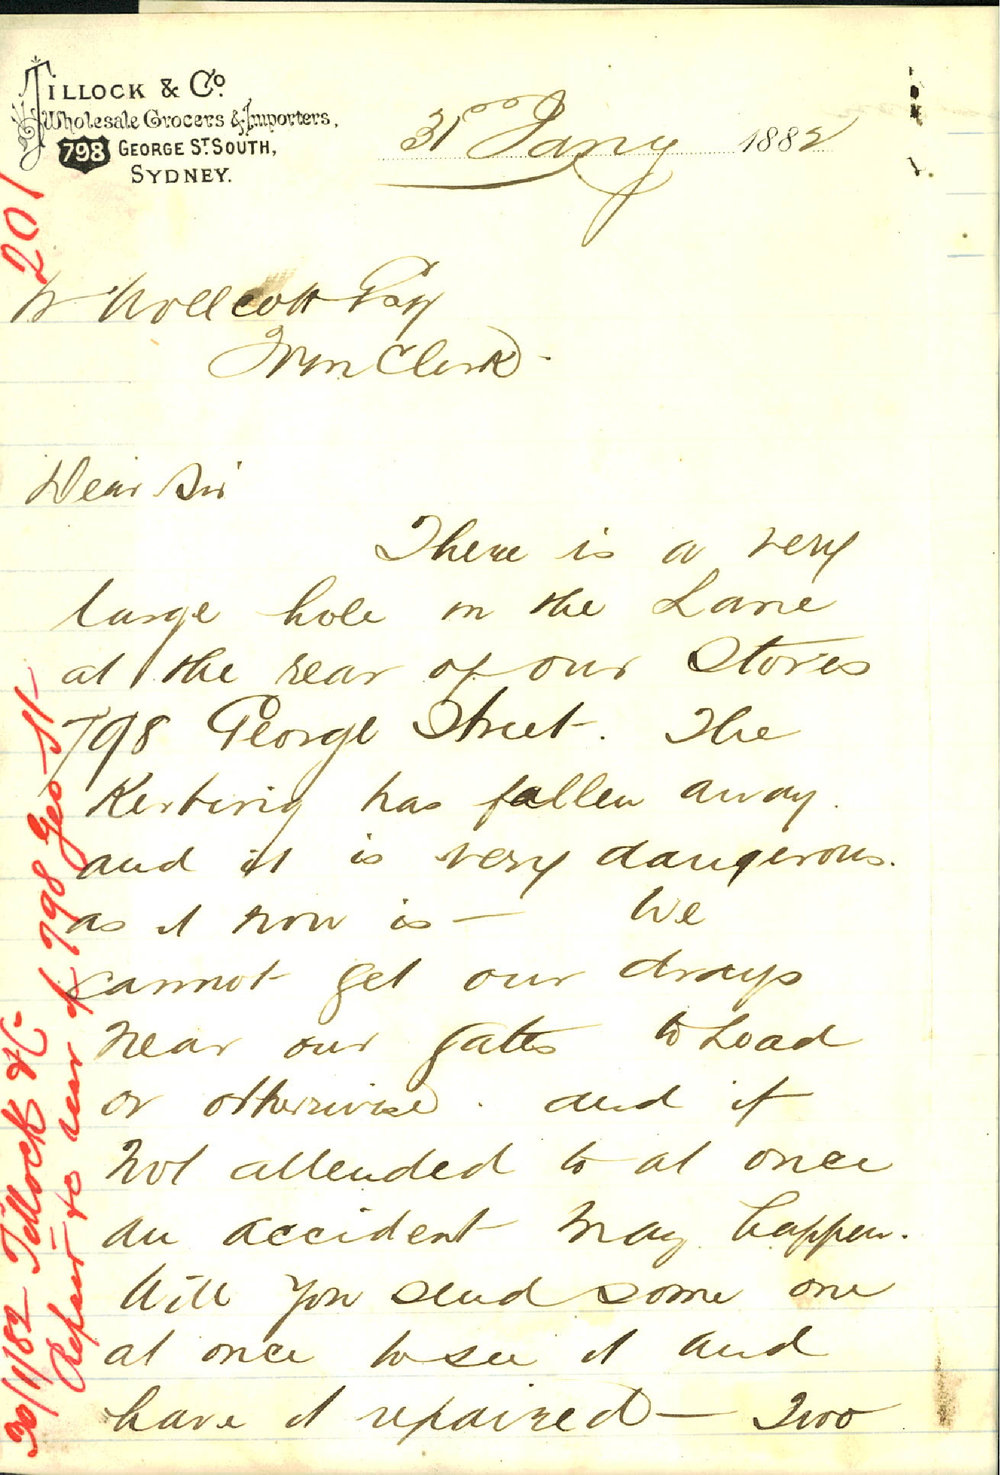 TILLOCK & Co.
Wholesale Grocers & Importers,
798 GEORGE ST. SOUTH,
SYDNEY.
31 Jany 1882
201
W Wollcott Esq
Town Clerk
Dear Sir
There is a very
large hole in the Lane
at the rear of our Stores
798 George Street. The
Kerbing has fallen away.
and it is very dangerous.
as it now is — We
cannot get our drays
near our gates to load
or otherwise. and if
not attended to at once
an accident may happen.
Will you send some one
at once to see it and
have it repaired — Two
30/1/82 Tillock &C
Repair to rear of 798 Geo St